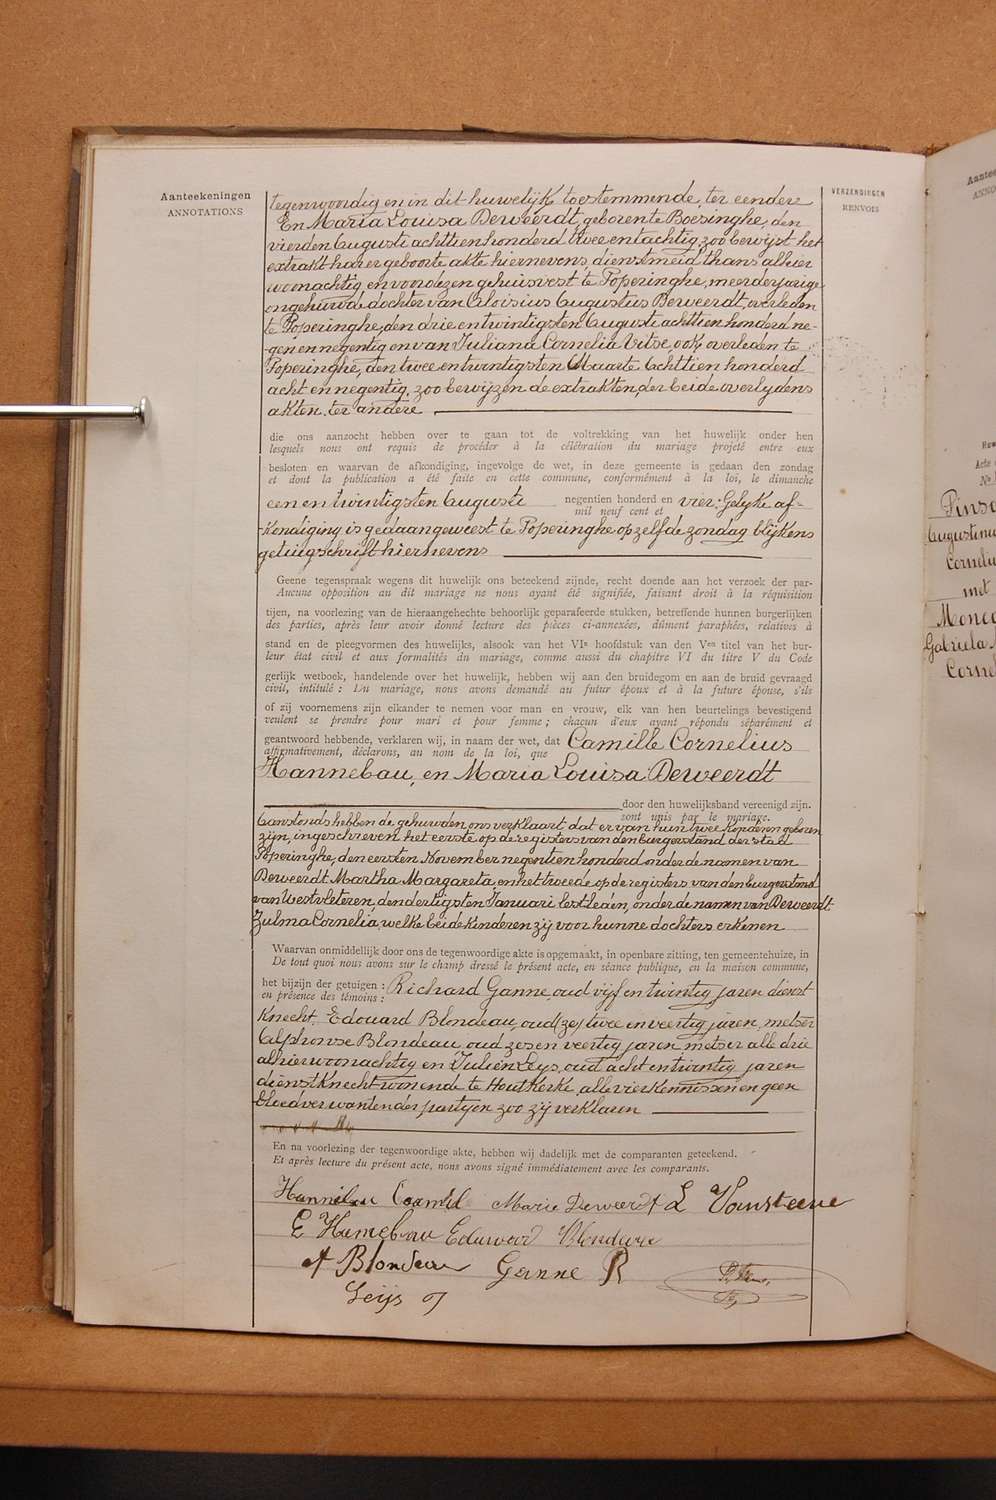 Aanteekeningen
ANNOTATIONS
VERZENDINGEN
RENVOIS
tegenwoordig en in dit huwelijk toestemmende, ter eendere
En Maria Louisa Deweerdt, geboren te Boesinghe, den
vierden Augusti achttien honderd twee en tachtig, zoo bewijst het
extrakt harer geboorte akte hiernevens, dienstmeid thans alhier
woonachtig en voordezen gehuisvest te Poperinghe, meerderjarige
ongehuwde dochter van Aloisius Augustus Deweerdt, overleden
te Poperinghe, den drie en twintigsten Augusti achttien honderd ne-
-gen en negentig en van Juliana Cornelia Vitse, ook overleden te
Poperinghe, den twee en twintigsten Maarte achttien honderd
acht en negentig, zoo bewijzen de extrakten der beide overlydens
akten, ter andere
die ons aanzocht hebben over te gaan tot de voltrekking van het huwelijk onder hen
lesquels nous ont requis de procéder à la célébration du mariage projeté entre eux
besloten en waarvan de afkondiging, ingevolge de wet, in deze gemeente is gedaan den zondag
et dont la publication a été faite en cette commune, conformément à la loi, le dimanche
een en twintigsten Augusti negentien honderd en vier. Gelyke af-
mil neuf cent et
-kondiging is gedaan geweest te Poperinghe op zelfde zondag blijkens
getuigschrift hiernevens
Geene tegenspraak wegens dit huwelijk ons beteekend zijnde, recht doende aan het verzoek der par-
Aucune opposition au dit mariage ne nous ayant été signifiée, faisant droit à la réquisition
tijen, na voorlezing van de hieraangehechte behoorlijk geparafeerde stukken, betreffende hunnen burgerlijken
des parties, après leur avoir donné lecture des pièces ci-annexées, dûment paraphées, relatives à
stand en de pleegvormen des huwelijks, alsook van het VIe hoofdstuk van den Ven titel van het bur-
leur état civil et aux formalités du mariage, comme aussi du chapitre VI du titre V du Code
gerlijk wetboek, handelende over het huwelijk, hebben wij aan den bruidegom en aan de bruid gevraagd
civil, intitulé : Du mariage, nous avons demandé au futur époux et à la future épouse, s'ils
of zij voornemens zijn elkander te nemen voor man en vrouw, elk van hen beurtelings bevestigend
veulent se prendre pour mari et pour femme ; chacun d'eux ayant répondu séparément et
geantwoord hebbende, verklaren wij, in naam der wet, dat Camille Cornelius
affirmativement, déclarons, au nom de la loi, que
Hannebau, en Maria Louisa Deweerdt
door den huwelijksband vereenigd zijn.
sont unis par le mariage.
Aanstonds hebben de gehuwden ons verklaart dat er van hun twee kinderen geboren
zijn, ingeschreven het eerste op de registers van den burgerstand der stad
Poperinghe, den eersten November negentien honderd onder de namen van
Deweerdt Martha Margareta, en het tweede op de registers van den burgerstand
van Westvleteren, den dertigsten Januari lestleden, onder de namen van Deweerdt
Zulma Cornelia, welke beide kinderen zij voor hunne dochters erkenen
Waarvan onmiddelijk door ons de tegenwoordige akte is opgemaakt, in openbare zitting, ten gemeentehuize, in
De tout quoi nous avons sur le champ dressé le présent acte, en séance publique, en la maison commune,
het bijzijn der getuigen : Richard Ganne oud vijf en twintig jaren dienst
en présence des témoins :
knecht, Edouard Blondeau, oud (ze) twee en veertig jaren, metser
Alphonse Blondeau, oud zes en veertig jaren metser alle drie
alhier woonachtig en Julien Leys, oud acht en twintig jaren
dienstknecht wonende te Houtkerke, alle vier kennissen en geen
bloedverwanten der partyen zoo zij verklaren
En na voorlezing der tegenwoordige akte, hebben wij dadelijk met de comparanten geteekend.
Et après lecture du présent acte, nous avons signé immédiatement avec les comparants.
Hannebau Camiel Marie Deweerdt L Vansteene
E Hannebau Eduward Blondeau
A Blondeau Ganne R
Leijs J
Aantee
ANNO
Huw
Acte
No
Pinso
Augustinu
Corneliu
met
Monc
Gabriela
Corne